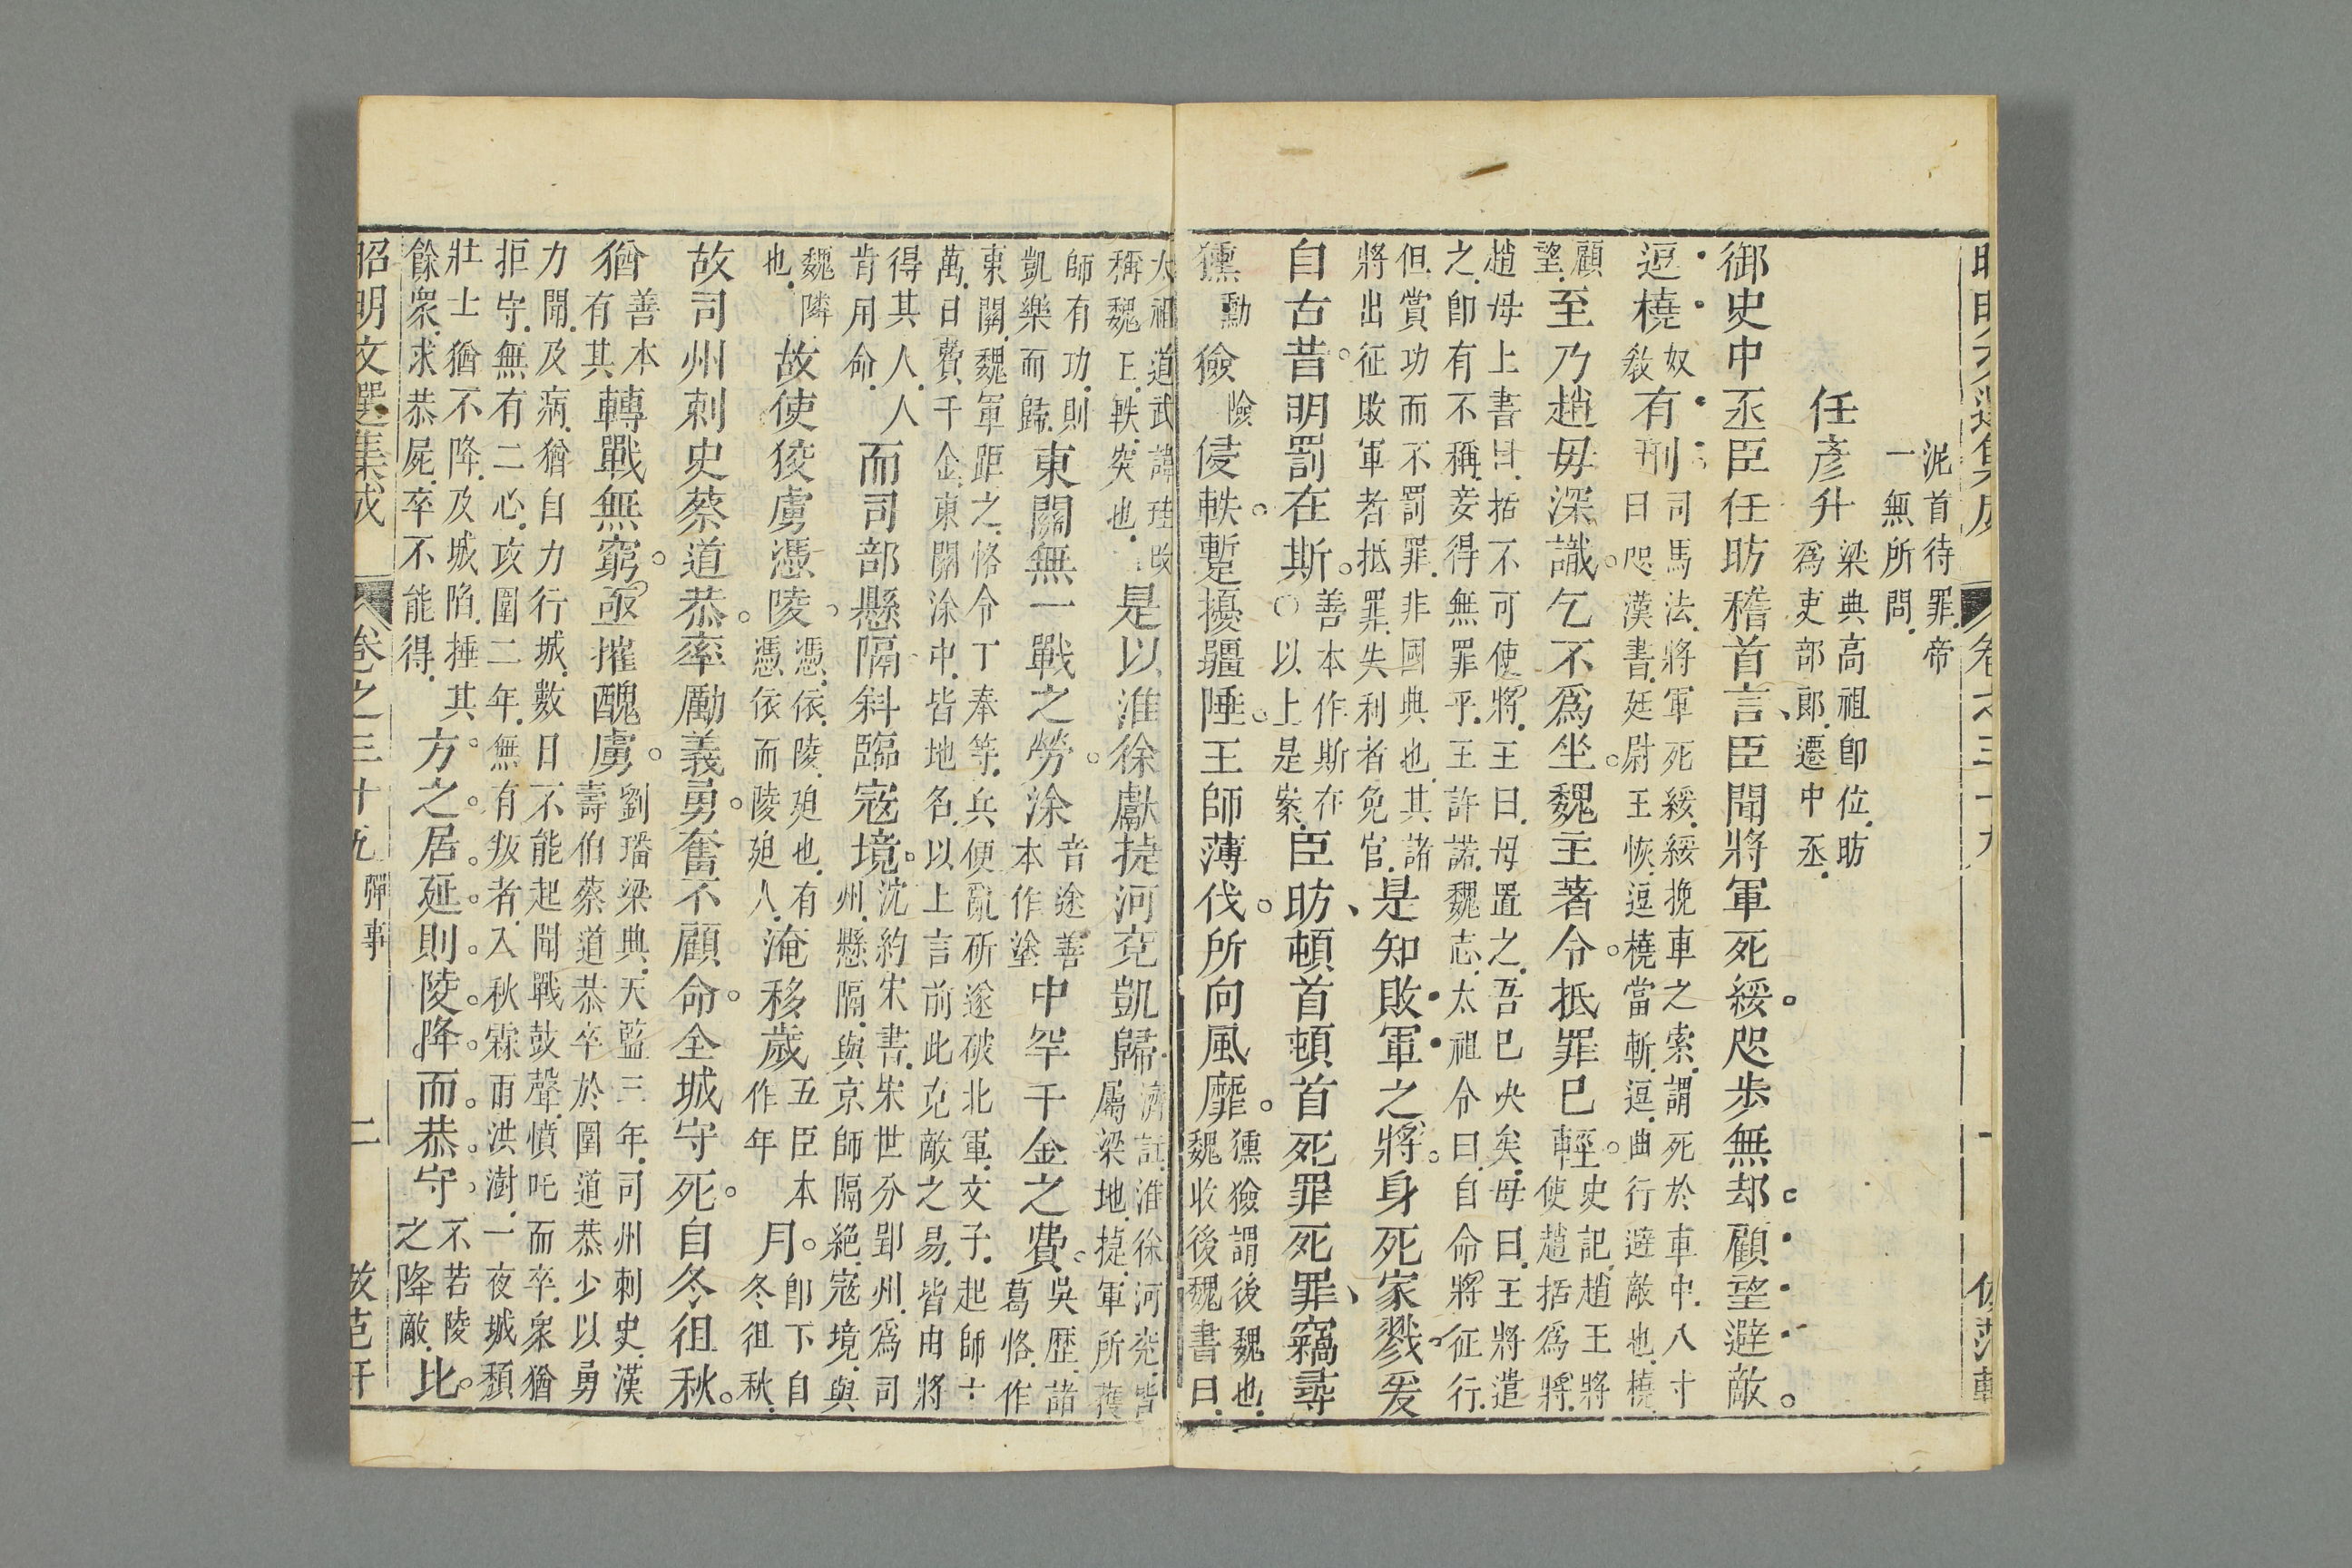 泥首待罪帝
一無所問
任彥升 梁典高祖即位昉
爲吏部郎遷中丞
御史中丞臣任昉稽首言臣聞將軍死綏咫步無却顧望避敵
逗橈 奴敎 有刑 司馬法將軍死綏綏挽車之索謂死於車中八寸
曰咫漢書廷尉王恢逗橈當斬逗曲行避敵也橈
顧望 至乃趙毋深識乞不爲坐魏主著令抵罪巳輕 史記趙王將
使趙括爲將
趙母上書曰括不可使將王曰母置之吾已决矣母曰王將遣
之卽有不稱妾得無罪乎王許諾魏志太祖令曰自命將征行
但賞功而不罰罪非國典也其諸
將出征敗軍者抵罪失利者免官 是知敗軍之將身死家戮爰
自古昔明罰在斯 善本作斯在
○以上是案 臣昉頓首頓首死罪死罪竊尋
獯 勳 獫 險 侵軼蹔擾疆陲王師薄伐所向風靡 獯獫謂後魏也
魏收後魏書曰
太祖道武諱珪改
稱魏王軼突也 是以淮徐獻捷河兖凱歸 濟註淮徐河兖皆
屬梁地捷軍所獲
師有功則
凱樂而歸 東關無一戰之勞涂 音途善
本作塗 中罕千金之費 吳歷諸
葛恪作
東關魏軍距之恪令丁奉等兵便亂斫遂破北軍文子起師十
萬日費千金東關涂中皆地名以上言前此克敵之易皆由將
得其人人
肯用命 而司部懸隔斜臨寇境 沈約宋書朱世分郢州爲司
州懸隔與京師隔絕寇境與
魏隣
也 故使狡虜憑陵 憑依陵廹也有
憑依而陵廹人 淹移歲 五臣本
作年 月 卽下自
冬徂秋
故司州刺史蔡道恭率勵義勇奮不顧命全城守死自冬徂秋
猶 善本
有其 轉戰無窮亟摧醜虜 劉璠梁典天監三年司州刺史漢
壽伯蔡道恭卒於圍道恭少以勇
力聞及病猶自力行城數日不能起聞戰鼓聲憤吒而卒衆猶
拒守無有二心攻圍二年無有叛者入秋霖雨洪澍一夜城頹
壯士猶不降及城陷捶其
餘衆求恭屍卒不能得 方之居延則陵降而恭守 不若陵
之降敵 比
昭明文選集成 卷之三十九 彈事 二